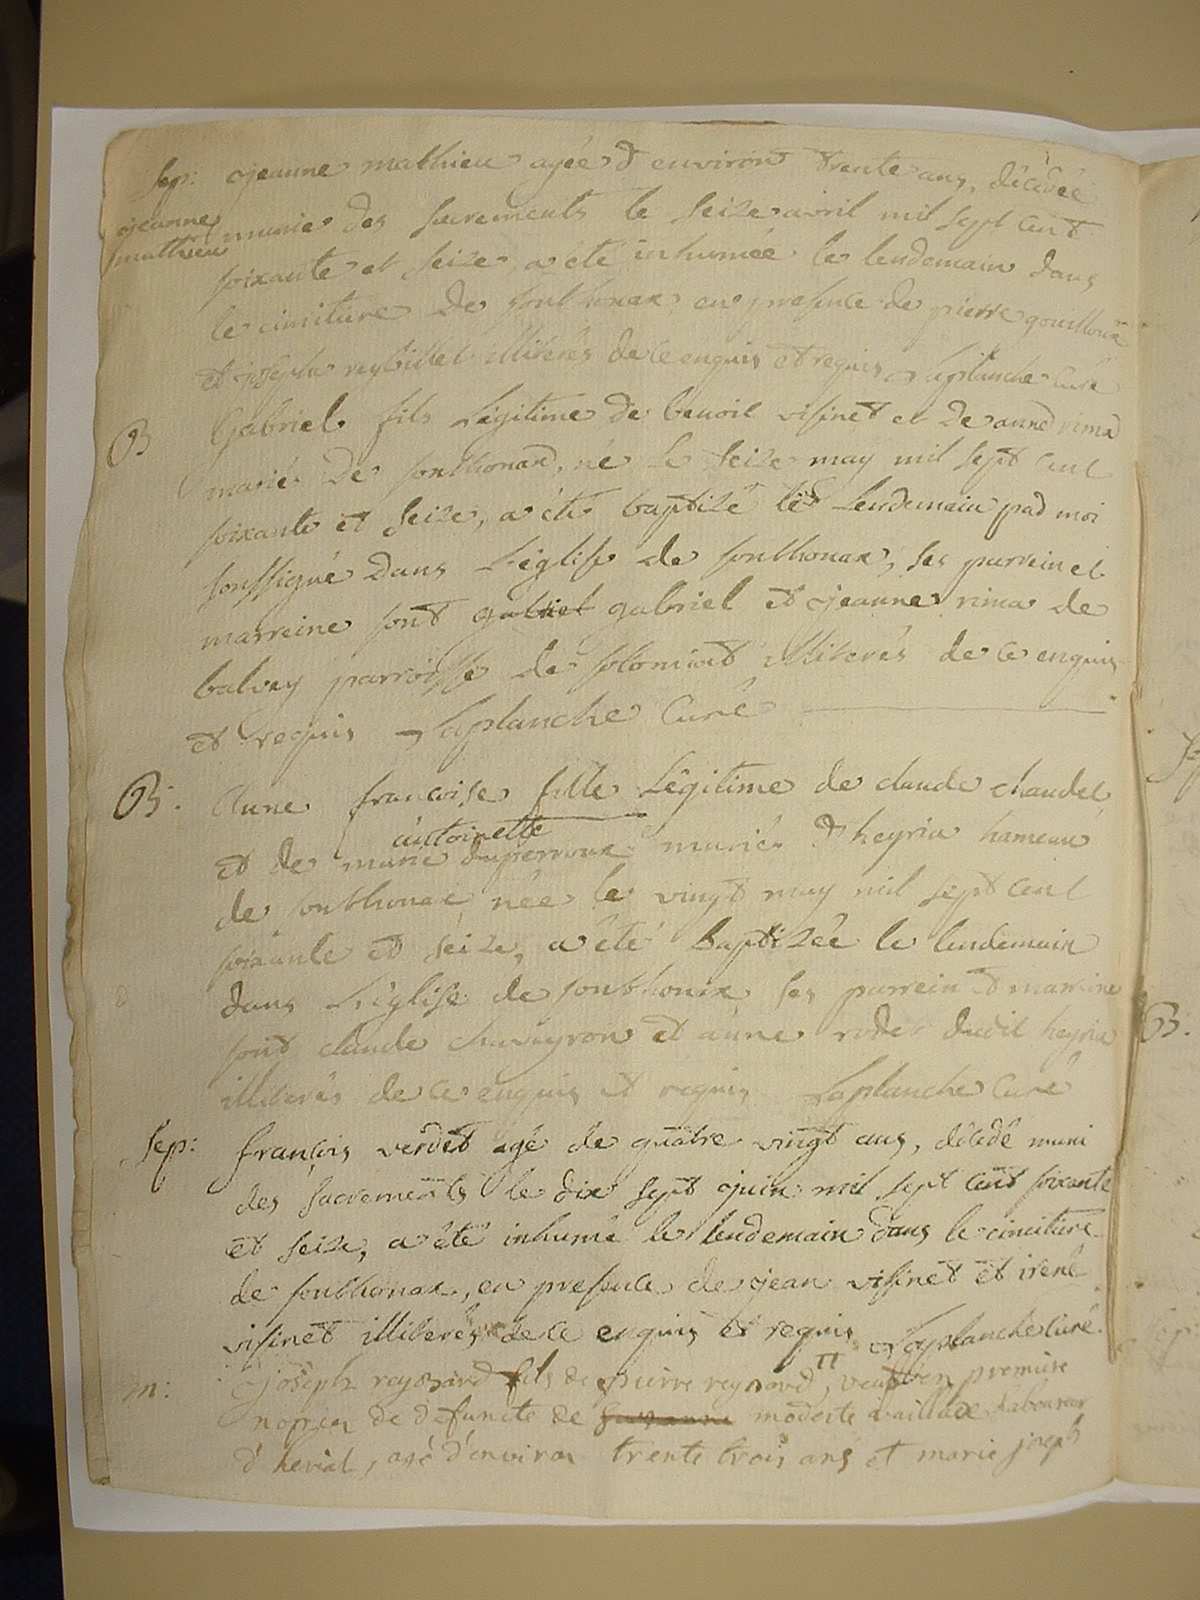 Sep: jeanne mathieu agée d environ trente ans, décédée
jeanne
mathieu
munie des sacrements le seize avril mil sept cent
soixante et seize, a été inhumée le lendemain dans
le cimitiere de sonthonax en presence de pierre
et joseph illiterés de ce enquis et requis Laplanche Curé
B Gabriel fils Légitime de benoit visinet et de anne rima
mariés de sonthonax, né le seize may mil sept cent
soixante et seize, a été baptizé le Lendemain par moi
soussigné dans L'église de sonthonax, ses parrein et
marreine sont gabriel gabriel et jeanne rima de
balvay parroisse de solomiat illiterés de ce enquis
et requis Laplanche Curé
B: Anne francoise fille Légitime de claude chaudet
antoinette
et de marie duperroux mariés d heyria hameau
de sonthonax née le vingt may mil sept cent
soixante et seize, a été baptizée le lendemain
dans L'église de sonthonax ses parrein et marreine
sont claude chavayron et anne rodet dudit heyria
illiterés de ce enquis et requis Laplanche Curé
Sep: françois verdet agé de quatre vingt ans, décédé muni
des sacrements le dix sept juin mil sept cent soixante
et seize, a été inhumé le lendemain dans le cimitiere
de sonthonax, en presence de jean visinet et irené
visinet illiterés de ce enquis et requis Laplanche Curé.
m: joseph reydard fils de pierre reydard, veuf en premiere
nopces de defuncte de modeste laboureur
d' heriat, agé d'environ trente trois ans et marie joseph
B.